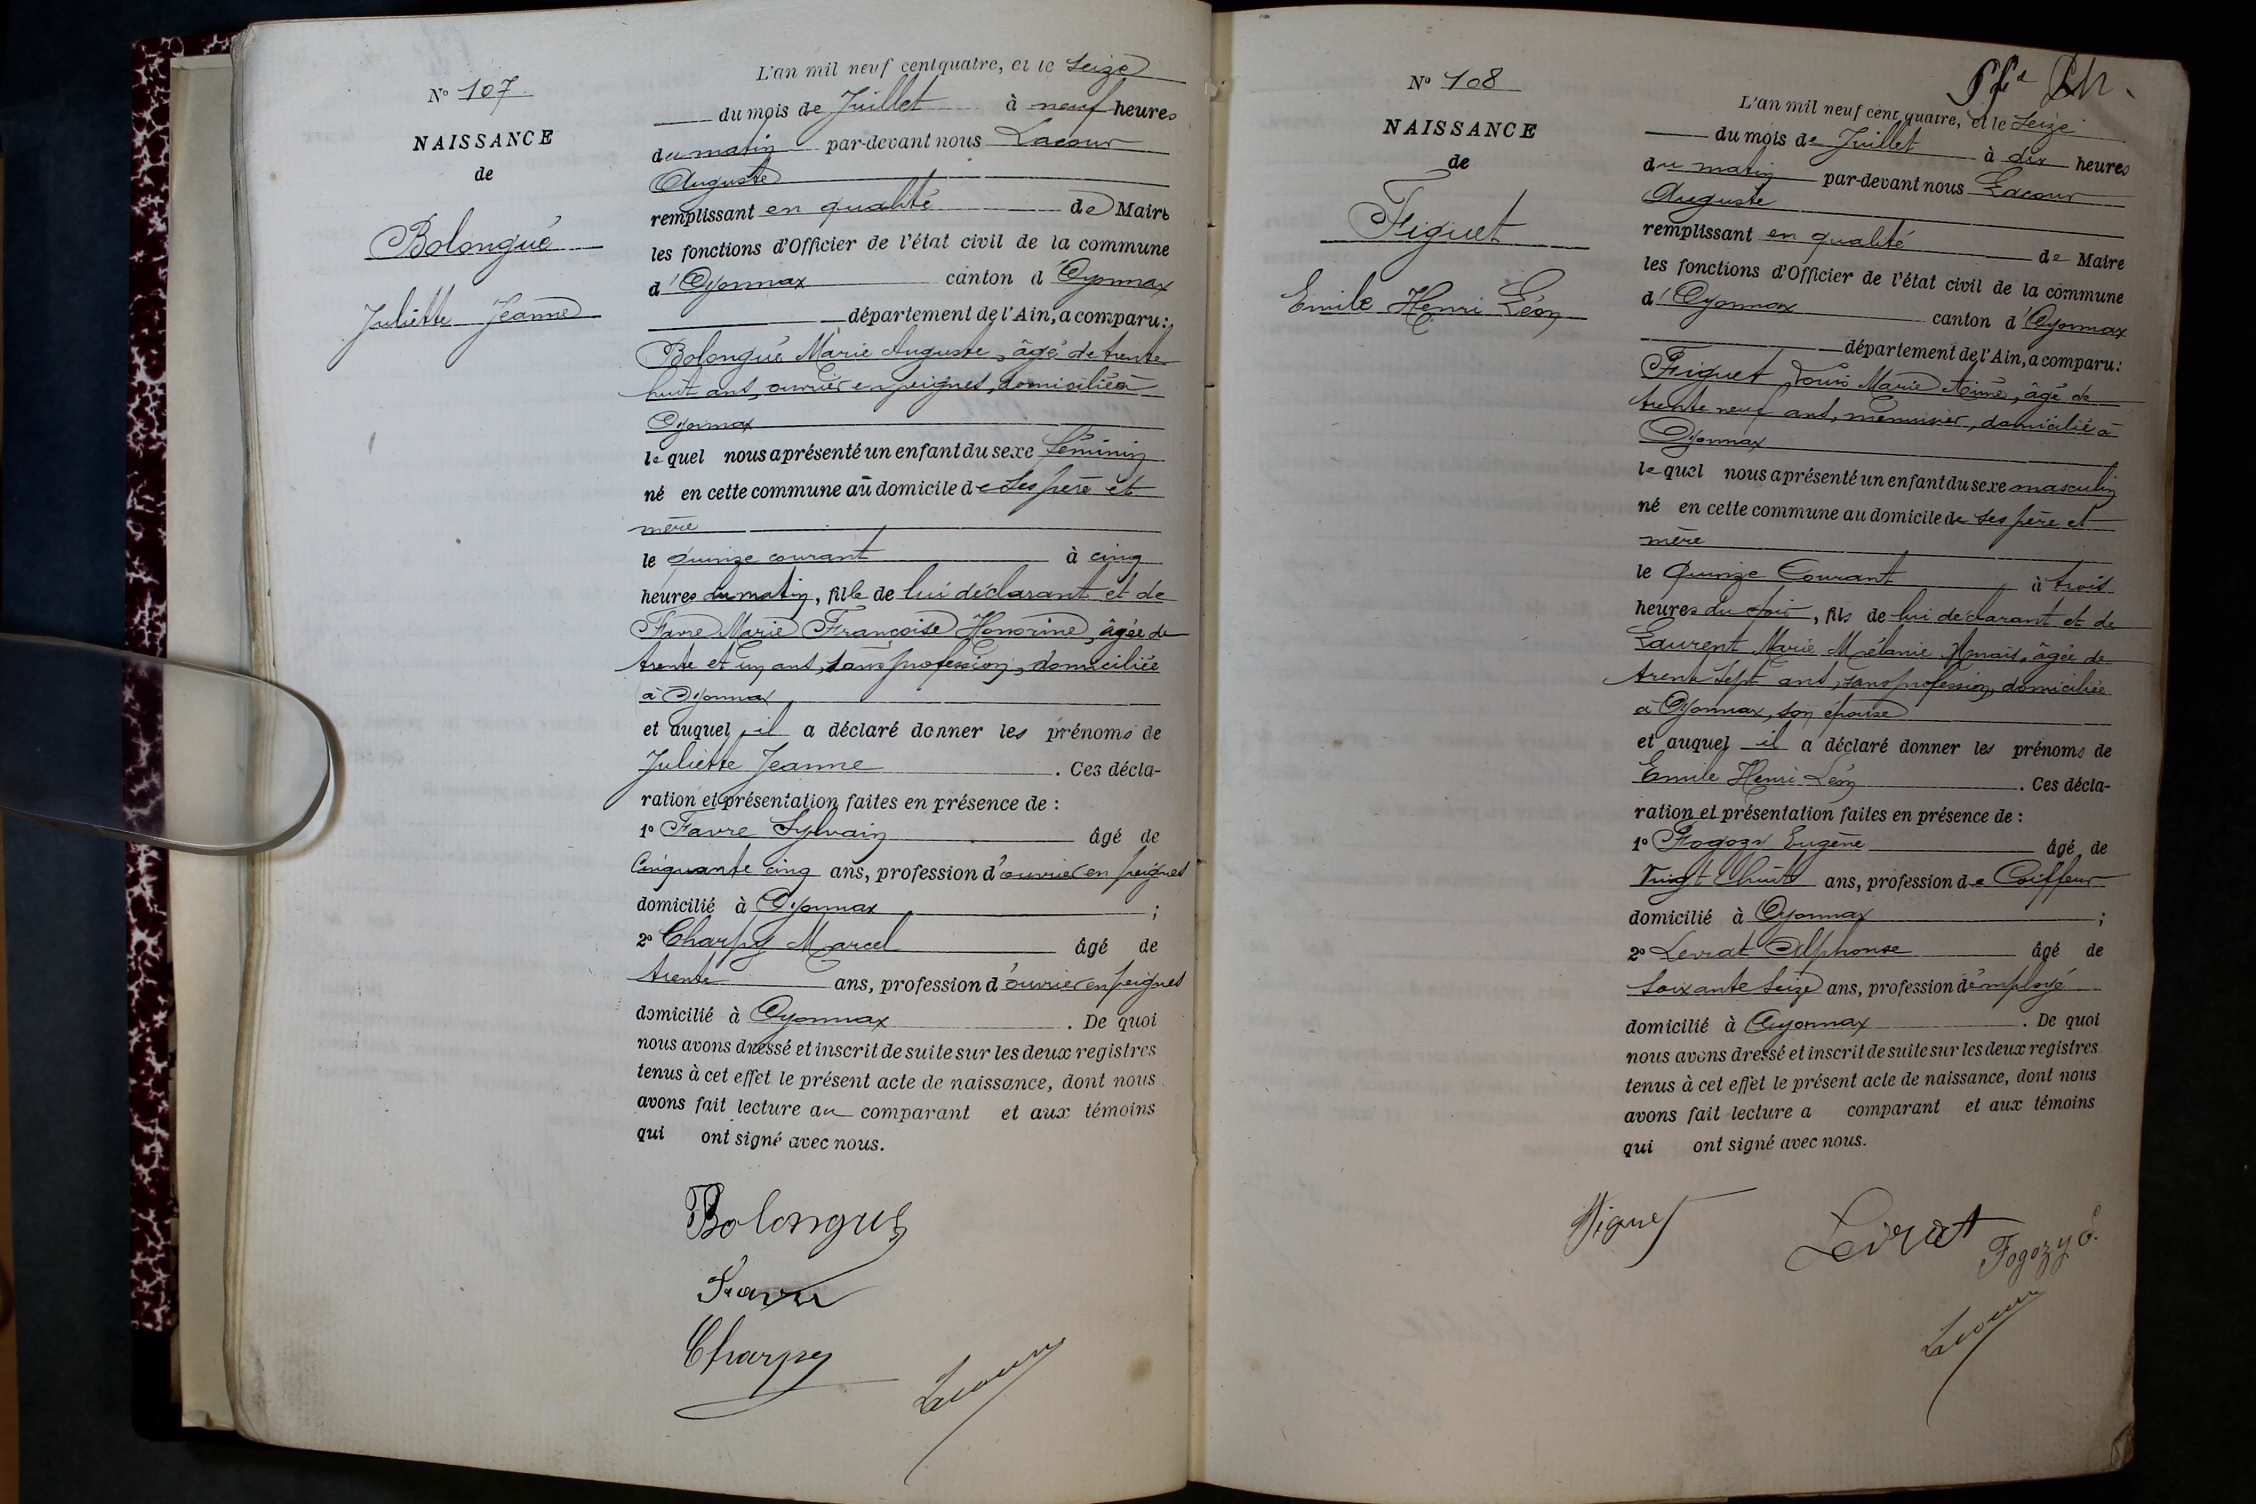 N° 107
NAISSANCE
de
Bolongue
Juliette Jeanne
L'an mil neuf cent quatre, et le Seize
du mois de Juillet à neuf heures
du matin par-devant nous Lacour
Auguste
remplissant en qualité de Maire
les fonctions d'Officier de l'état civil de la commune
d'Oyonnax canton d'Oyonnax
département de l'Ain, a comparu:
Bolongue Marie Auguste, âgé de trente
huit ans, ouvrier en peignes, domicilié à
Oyonnax
lequel nous a présenté un enfant du sexe féminin
né en cette commune au domicile de ses père et
mère
le quinze courant à cinq
heures du matin, fille de lui déclarant et de
Favre Marie Françoise Honorine, âgée de
trente et un ans, sans profession, domiciliée
à Oyonnax
et auquel il a déclaré donner les prénoms de
Juliette Jeanne. Ces décla-
ration et présentation faites en présence de :
1° Favre Sylvain âgé de
Cinquante cinq ans, profession d'ouvrier en peignes
domicilié à Oyonnax ;
2° Charpy Marcel âgé de
trente ans, profession d'ouvrier en peignes
domicilié à Oyonnax. De quoi
nous avons dressé et inscrit de suite sur les deux registres
tenus à cet effet le présent acte de naissance, dont nous
avons fait lecture au comparant et aux témoins
qui ont signé avec nous.
Bolongue
Favre
Charpy
Lacour
N° 108
NAISSANCE
de
Figuet
Emile Henri Léon
L'an mil neuf cent quatre, et le Seize
du mois de Juillet à dix heures
du matin par-devant nous Lacour
Auguste
remplissant en qualité de Maire
les fonctions d'Officier de l'état civil de la commune
d'Oyonnax canton d'Oyonnax
département de l'Ain, a comparu:
Figuet Louis Marie Aimé, âgé de
trente neuf ans, menuisier, domicilié à
Oyonnax
lequel nous a présenté un enfant du sexe masculin
né en cette commune au domicile de ses père et
mère
le Quinze Courant à trois
heures du soir, fils de lui déclarant et de
Laurent Marie Mélanie âgée de
trente sept ans, sans profession, domiciliée
à Oyonnax, son épouse
et auquel il a déclaré donner les prénoms de
Emile Henri Léon. Ces décla-
ration et présentation faites en présence de :
1° Fogozy Eugène âgé de
Vingt huit ans, profession de Coiffeur
domicilié à Oyonnax ;
2° Levrat Alphonse âgé de
Soixante Seize ans, profession d'employé
domicilié à Oyonnax. De quoi
nous avons dressé et inscrit de suite sur les deux registres
tenus à cet effet le présent acte de naissance, dont nous
avons fait lecture a comparant et aux témoins
qui ont signé avec nous.
Figuet
Levrat
Fogozy E.
Lacour